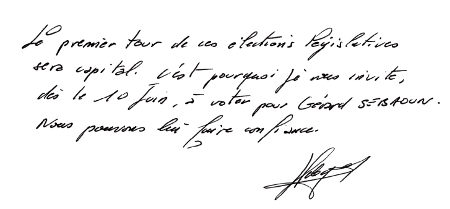 Le premier tour de ces élections législatives
sera capital. C'est pourquoi je vous invite,
dès le 10 Juin, à voter pour Gérard SEBAOUN.
Nous pouvons lui faire confiance.